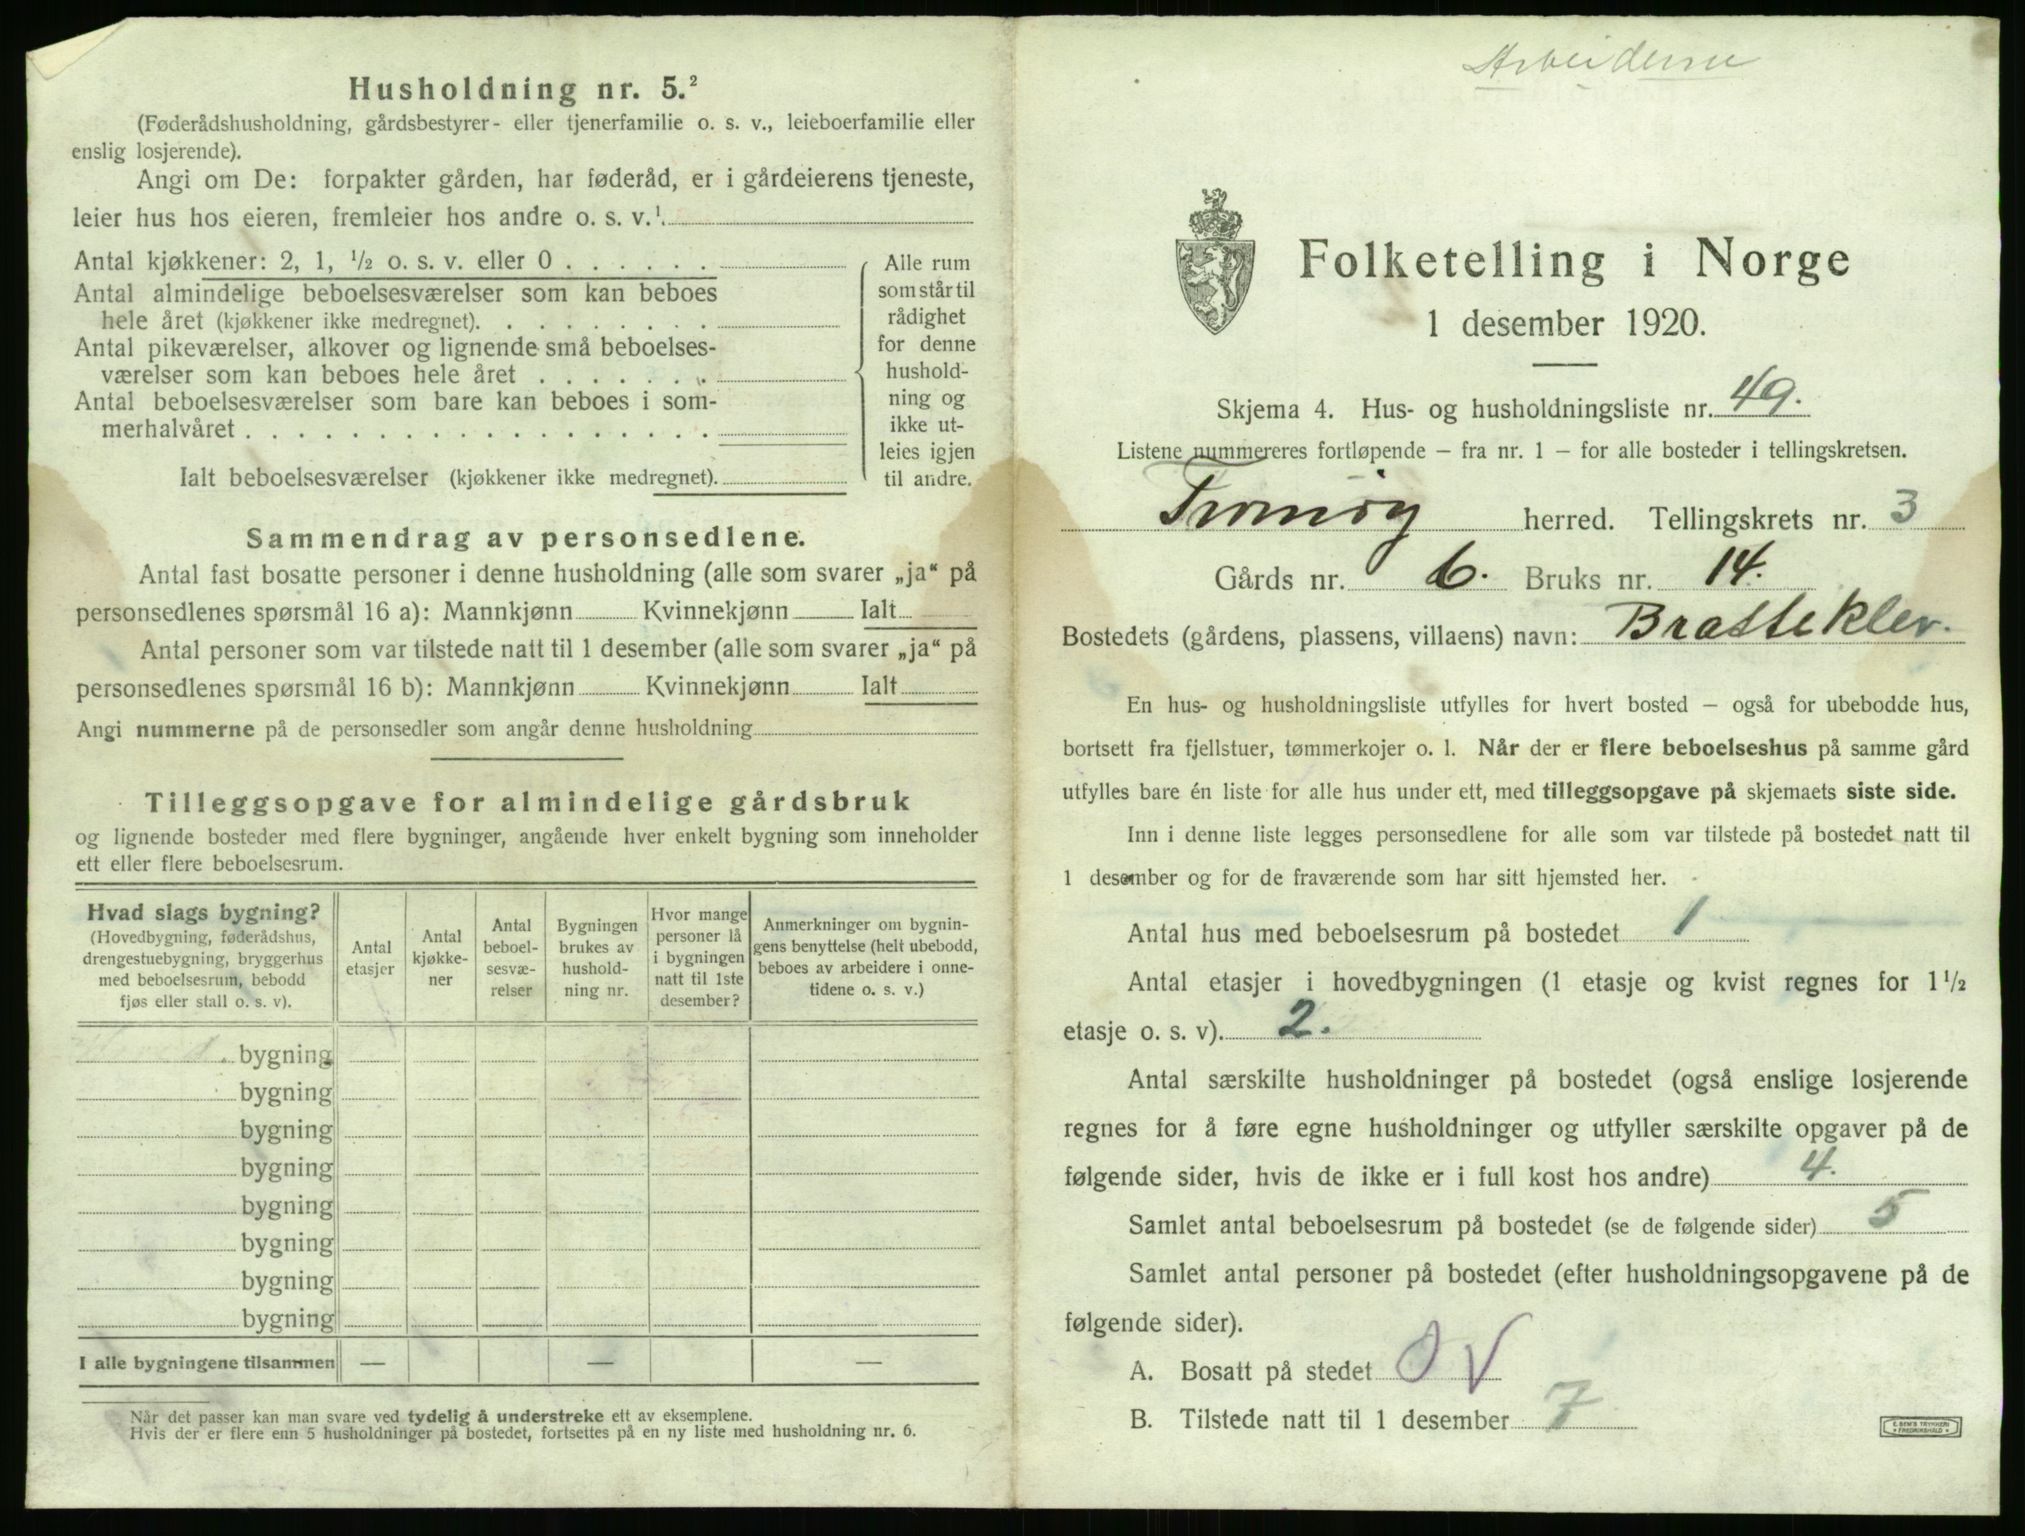 Husholdning nr. 5.²
(Føderådshusholdning, gårdsbestyrer- eller tjenerfamilie o. s. v., leieboerfamilie eller
enslig losjerende).
Angi om De: forpakter gården, har føderåd, er i gårdeierens tjeneste,
leier hus hos eieren, fremleier hos andre o. s. v.¹
Antal kjøkkener: 2, 1, ½ o. s. v. eller 0
Antal almindelige beboelsesværelser som kan beboes
hele året (kjøkkener ikke medregnet).
Antal pikeværelser, alkover og lignende små beboelses-
værelser som kan beboes hele året
Antal beboelsesværelser som bare kan beboes i som-
merhalvåret
Ialt beboelsesværelser (kjøkkener ikke medregnet).
Alle rum
som står til
rådighet
for denne
hushold-
ning og
ikke ut-
leies igjen
til andre.
Sammendrag av personsedlene.
Antal fast bosatte personer i denne husholdning (alle som svarer „ja“ på
personsedlenes spørsmål 16 a): Mannkjønn Kvinnekjønn Ialt
Antal personer som var tilstede natt til 1 desember (alle som svarer „ja“ på
personsedlenes spørsmål 16 b): Mannkjønn Kvinnekjønn Ialt
Angi nummerne på de personsedler som angår denne husholdning
Tilleggsopgave for almindelige gårdsbruk
og lignende bosteder med flere bygninger, angående hver enkelt bygning som inneholder
ett eller flere beboelsesrum.
Hvad slags bygning?
(Hovedbygning, føderådshus,
drengestuebygning, bryggerhus
med beboelsesrum, bebodd
fjøs eller stall o. s. v).
Antal
etasjer
Antal
kjøkke-
ner
Antal
beboel-
sesvæ-
relser
Bygningen
brukes av
hushold-
ning nr.
Hvor mange
personer lå
i bygningen
natt til 1ste
desember?
Anmerkninger om bygnin-
gens benyttelse (helt ubebodd,
beboes av arbeidere i onne-
tidene o. s. v.)
bygning
bygning
bygning
bygning
bygning
bygning
bygning
bygning
I alle bygningene tilsammen — — —
¹ Når det passer kan man svare ved tydelig å understreke ett av eksemplene.
² Hvis der er flere enn 5 husholdninger på bostedet, fortsettes på en ny liste med husholdning nr. 6.
Arbeiderne
Folketelling i Norge
1 desember 1920.
Skjema 4. Hus- og husholdningsliste nr. 49.
Listene nummereres fortløpende – fra nr. 1 – for alle bosteder i tellingskretsen.
Tromøy herred. Tellingskrets nr. 3
Gårds nr. 6. Bruks nr. 14.
Bostedets (gårdens, plassens, villaens) navn: Bratteklev.
En hus- og husholdningsliste utfylles for hvert bosted – også for ubebodde hus,
bortsett fra fjellstuer, tømmerkojer o. l. Når der er flere beboelseshus på samme gård
utfylles bare én liste for alle hus under ett, med tilleggsopgave på skjemaets siste side.
Inn i denne liste legges personsedlene for alle som var tilstede på bostedet natt til
1 desember og for de fraværende som har sitt hjemsted her.
Antal hus med beboelsesrum på bostedet 1
Antal etasjer i hovedbygningen (1 etasje og kvist regnes for 1½
etasje o. s. v). 2.
Antal særskilte husholdninger på bostedet (også enslige losjerende
regnes for å føre egne husholdninger og utfyller særskilte opgaver på de
følgende sider, hvis de ikke er i full kost hos andre) 4.
Samlet antal beboelsesrum på bostedet (se de følgende sider) 5
Samlet antal personer på bostedet (efter husholdningsopgavene på de
følgende sider).
A. Bosatt på stedet 0 V
B. Tilstede natt til 1 desember 7
E. SEM'S TRYKKERI
FREDRIKSHALD